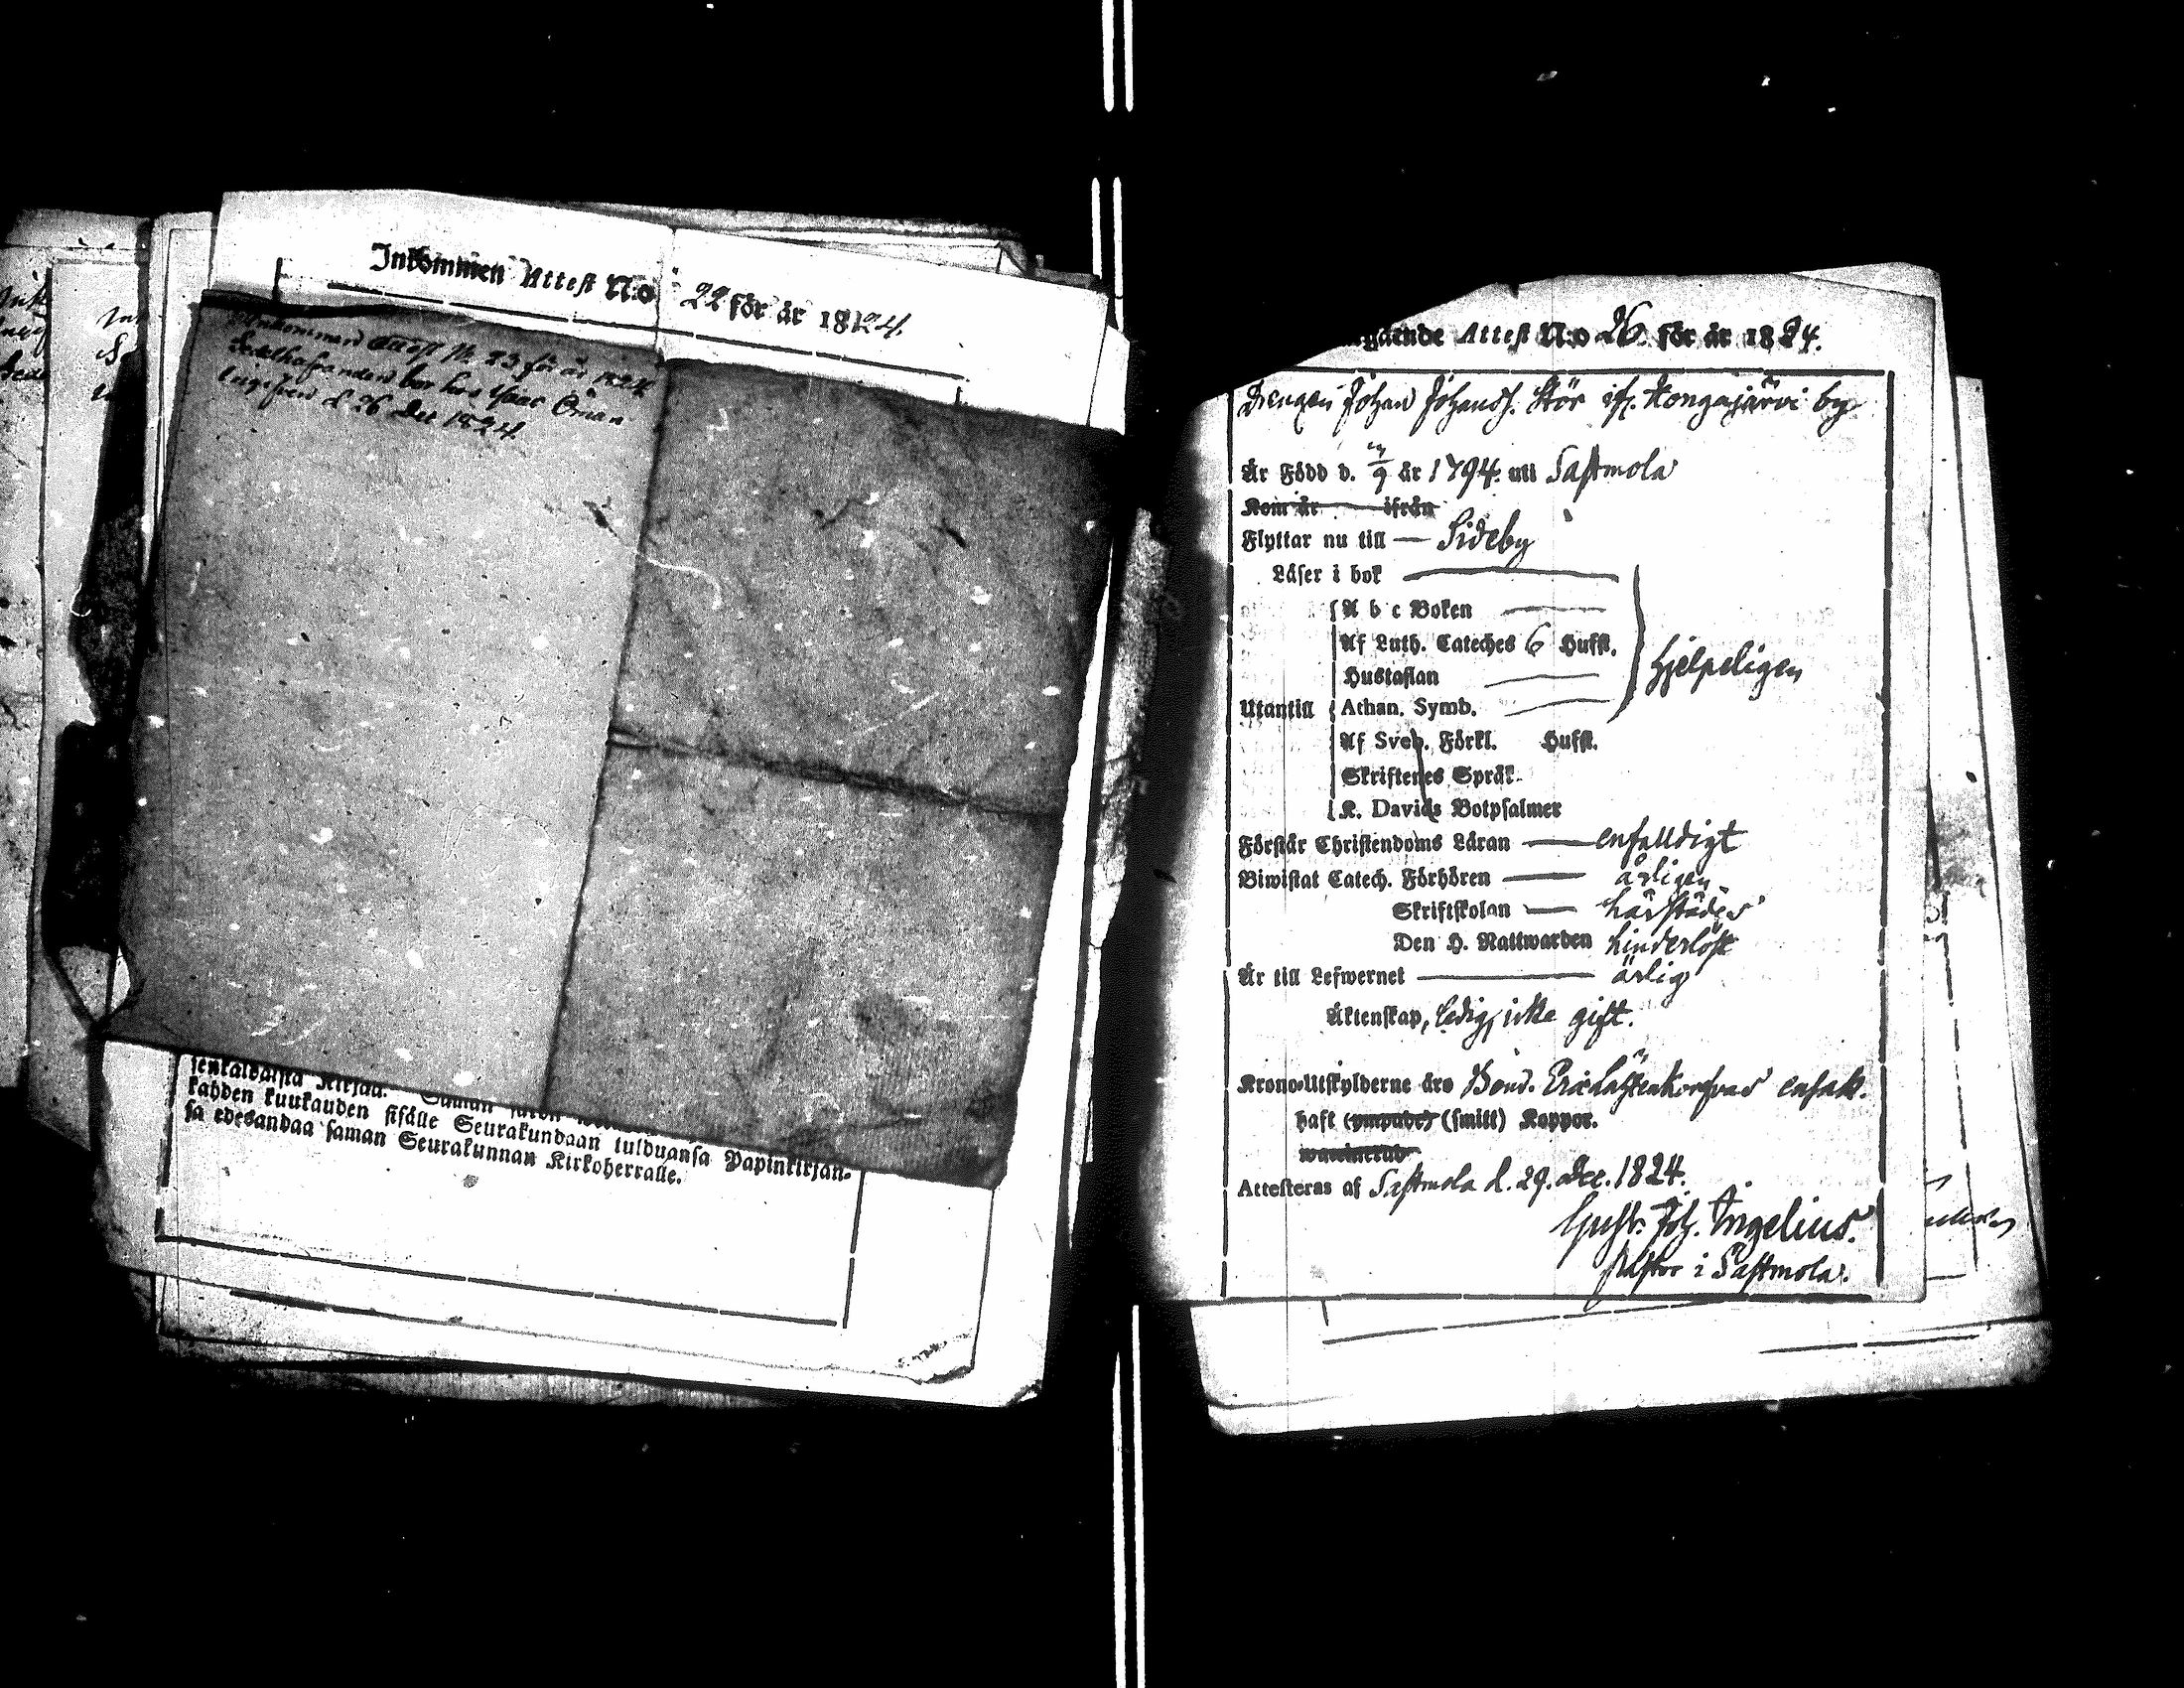 Inkommen Attest N:o 22 för år 1824.
Inkommen Attest No 23 för år 1824
Sedelhafvanden bor hos Isaac Öman
Ingifven d 26 Dec 1824
kahden kuukauden sisälle Seurakundaan tulduansa Papinkirjan-
sa edesandaa saman Seurakunnan Kirkoherralle.
gående Attest N:o 26 för år 1824.
Drengen Johan Johans. Stör ifr. Kongajärvi by
Är Född d. 9 år 1794. uti Sastmola
Kom år ifrån
Flyttar nu till — Sideby
Läser i bok
A b c Boken
Af Luth. Cateches 6 Hufst.
Hustaflan
hjelpeligen
Utantill Athan. Symb.
Af Sveb. Förkl. Hufst.
Skriftenes Språk
K. Davids Botpsalmer
Förstår Christendoms Läran — enfalldigt
Biwistat Catech. Förhören — årligen
Skriftskolan — härstädes
Den H. Nattwarden hinderlöst
Är till Lefwernet — ärlig
Äktenskap, ledig, icke gift.
Krono-Utskylderne äro Bond. Eric
haft (ympade) (smitt) Koppor.
Attesteras af Sastmola d. 29. Dec. 1824.
Gust. Joh. Ingelius.
Pastor i Sastmola.